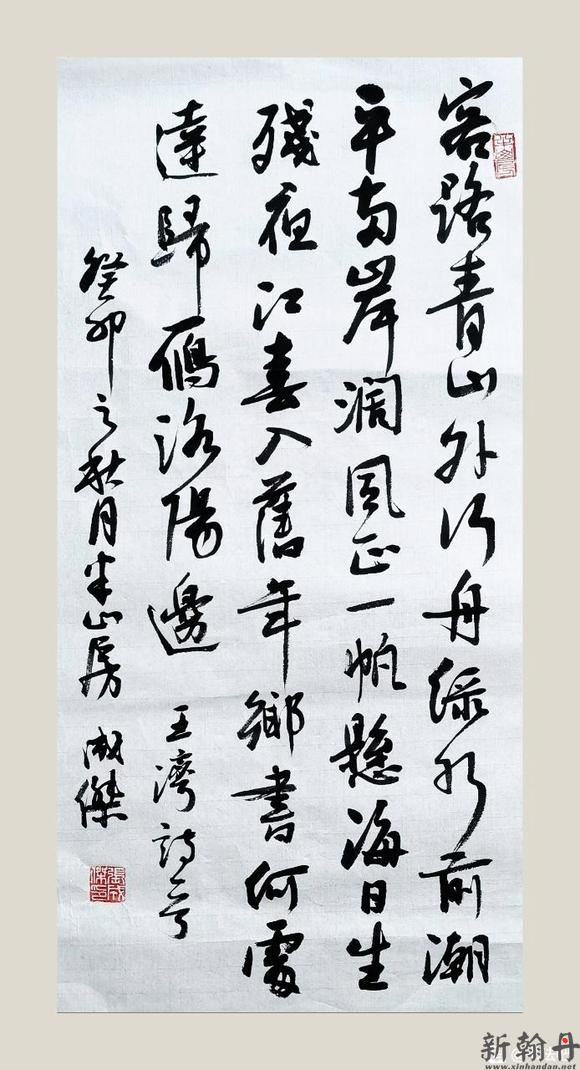 客路青山外行舟綠水前潮
平兩岸濶風正一帆懸海日生
殘夜江春入舊年鄉書何處
達歸鴈洛陽邊
王灣詩
癸卯之秋月半山房 成傑
張成傑印
新翰丹
www.xinhandan.net